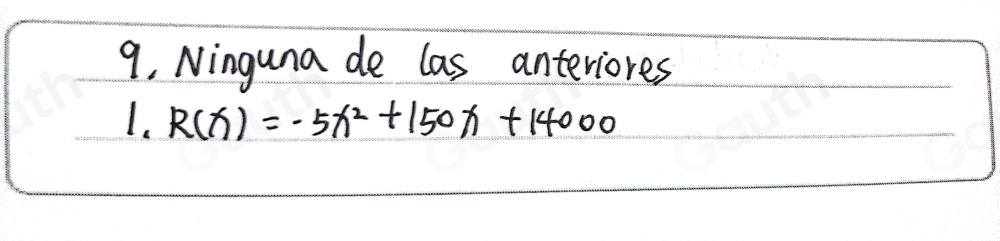 9. Ninguna de las anteriores
1. R(x) = -5x² + 150x + 14000